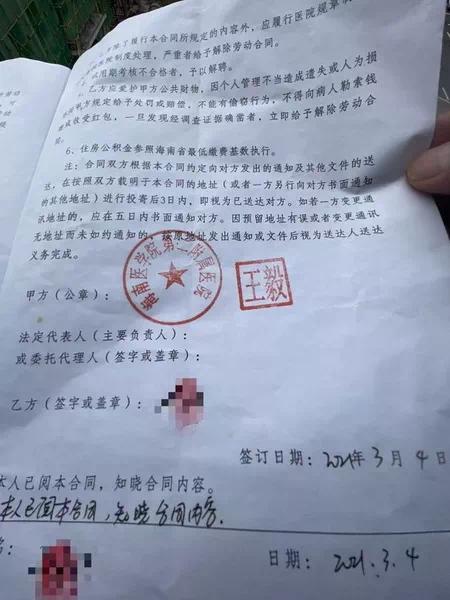 除了履行本合同所规定的内容外，应履行医院规章制
院制度处理，严重者给予解除劳动合同。
试用期考核不合格者，予以解聘。
乙方应爱护甲方公共财物，因个人管理不当造成遗失或人为损
甲方规定给予处罚或赔偿，不能有偷窃行为，不得向病人勒索钱
或收受红包，一旦发现经调查证据确凿者，立即给予解除劳动合
6、住房公积金参照海南省最低缴费基数执行。
注：合同双方根据本合同约定向对方发出的通知及其他文件的送
达，在按照双方载明于本合同的地址（或者一方另行向对方书面通知
的其他地址）进行投寄后3日内，即视为已送达对方。如若一方变更通
讯地的，应在五日内书面通知对方。因预留地址有误或者变更通讯
无地址而未如约通知的，按原地址发出通知或文件后视为送达人送达
义务完成。
海南医学院第二附属医院
王毅
甲方（公章）：
法定代表人（主要负责人）：
或委托代理人（签字或盖章）：
乙方（签字或盖章）：
签订日期：2021年3月4日
本人已阅本合同，知晓合同内容。
本人已阅本合同，知晓合同内容.
名：
日期：2021.3.4